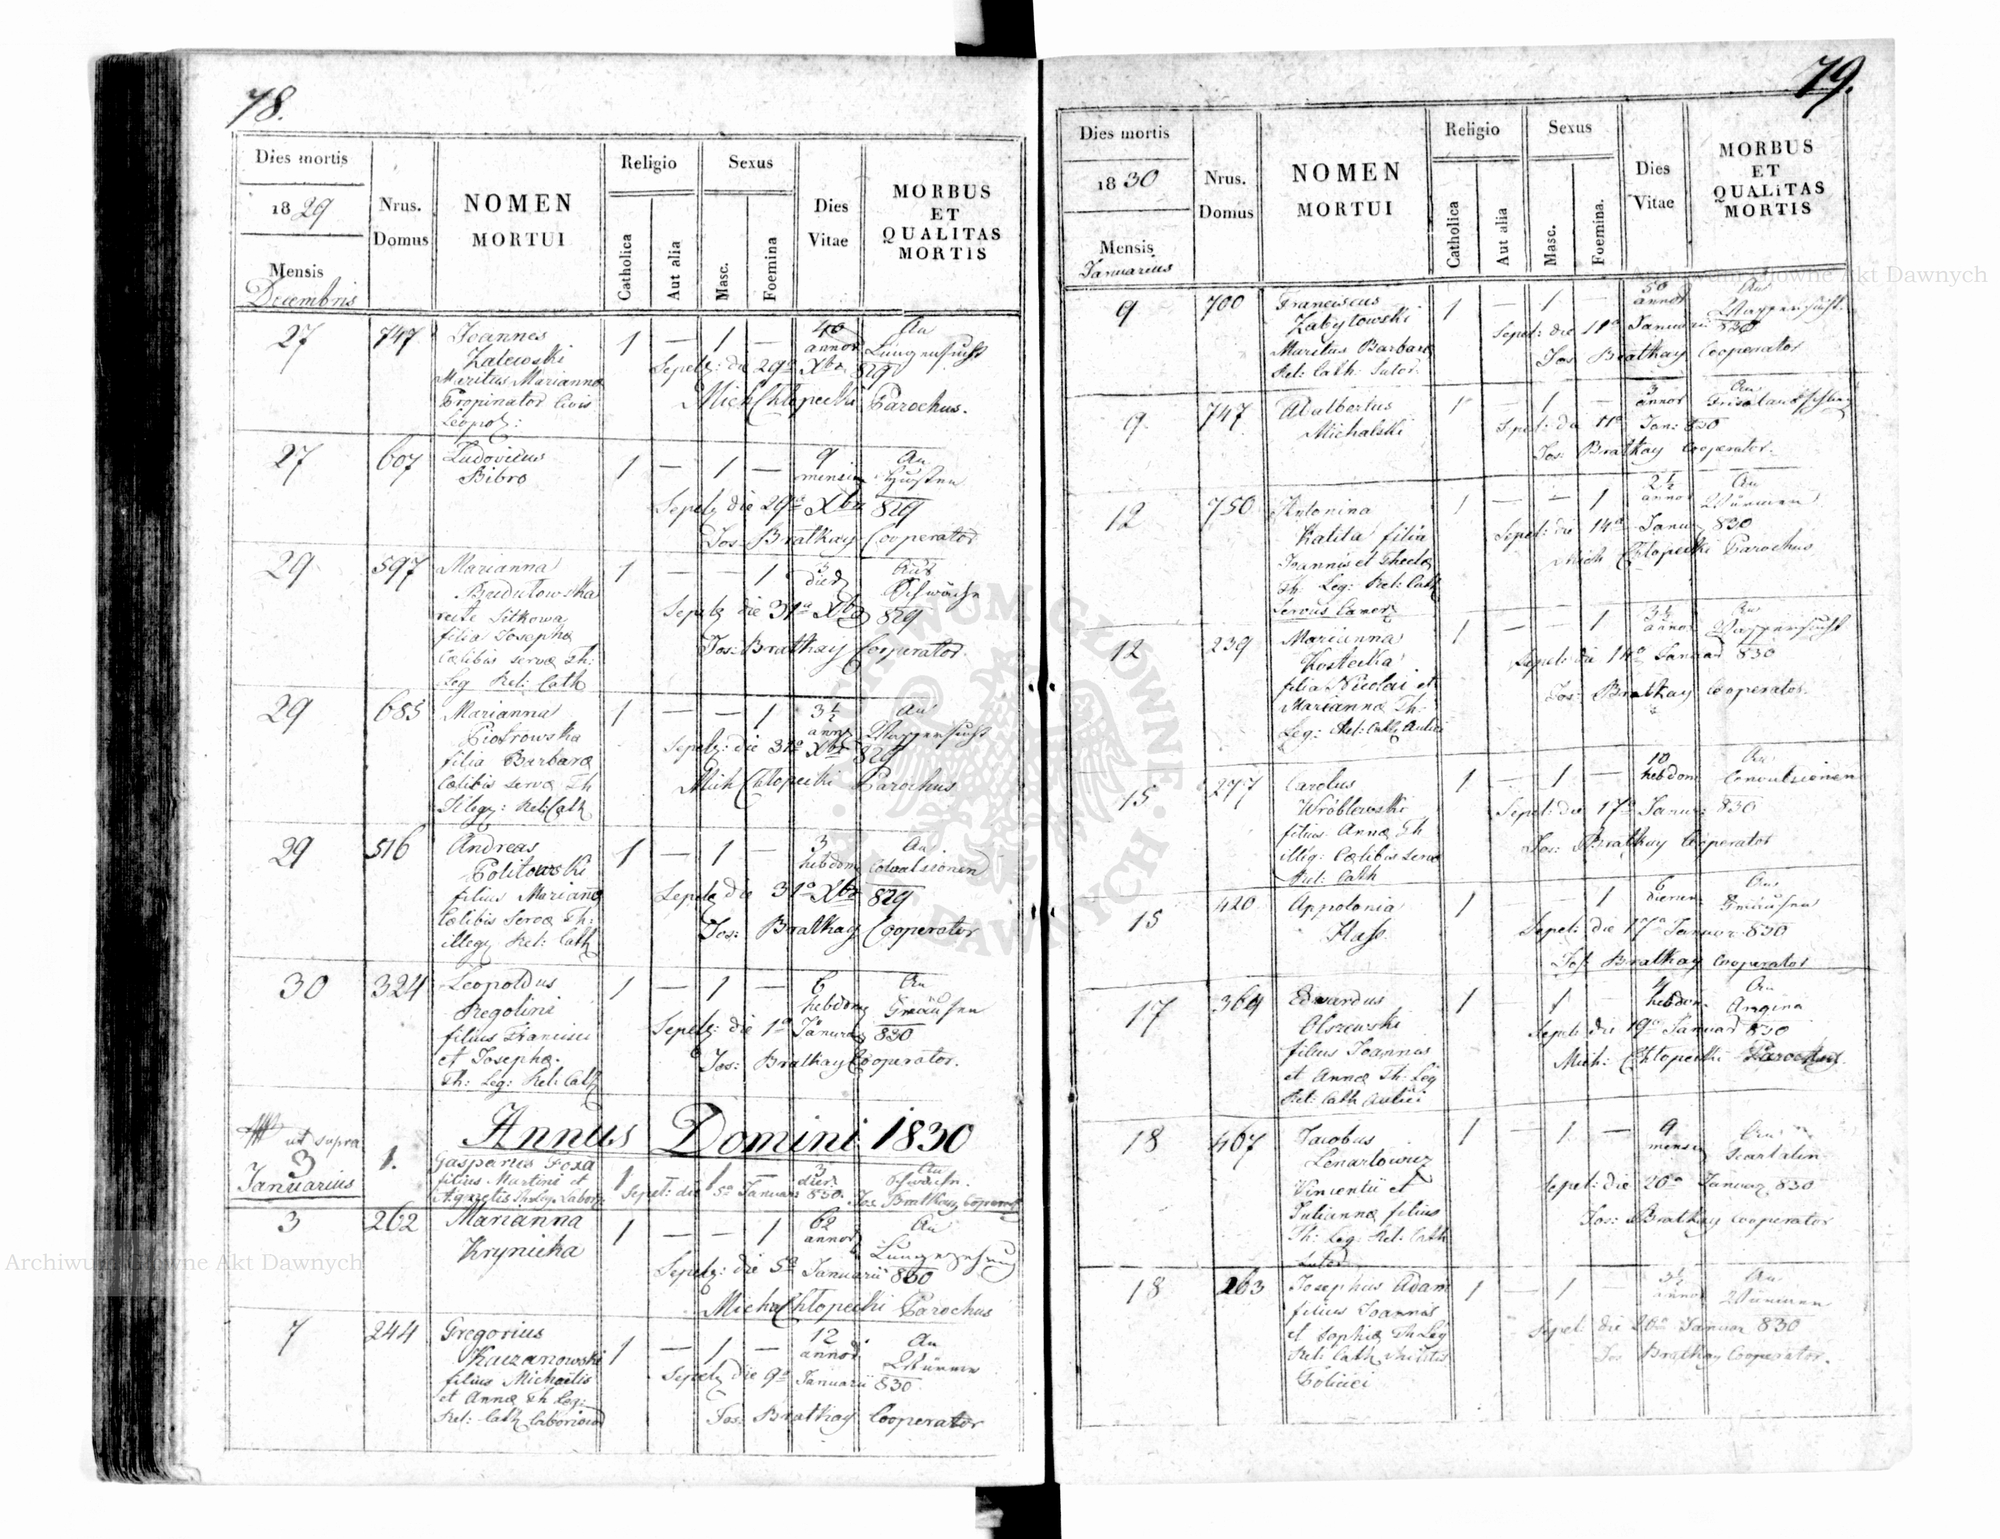 78.
Dies mortis
1829
Mensis
Decembris
Nrus.
Domus
NOMEN
MORTUI
Religio
Catholica
Aut alia
Sexus
Masc.
Foemina
Dies
Vitae
MORBUS
ET
QUALITAS
MORTIS
27 747 Joannes 1 — 1 — 40 An
Zalewski annor Lungensucht
Sepelz: die 29a Xbr 829
Maritus Marianna
Propinator Civis Mich Chłopecki Parochus.
Leopol:
27 607 Ludovicus 1 — 1 — 9 An
Bibro mensium Husten
Sepelz die 29a Xbr 829
Jos: Bratkay Cooperator
29 597 Marianna 1 — — 1 3 Aus
Budutowska dier Schwäche
recte Sitkowa Sepelz die 31a Xbr 829
filia Josepha
Cælibis servæ Th: Jos: Bratkay Cooperator.
Leg Rel: Cath
29 685 Marianna 1 — — 1 3½ An
Piotrowska annor Wassersucht
filia Barbaræ Sepelz: die 31a Xbr 829
Cælibis servæ Th Mich Chłopecki Parochus
Illeg: Rel: Cath
29 516 Andreas 1 — 1 — 3 An
Politowski hebdom Convulsionen
filius Marianæ Sepelz die 31a Xbr 829
Cælibis Servæ Th: Jos: Bratkay Cooperator
illeg Rel: Cath
30 324 Leopoldus 1 — 1 — 6 An
Regolini hebdom Fraisen
filius Francisci Sepelz: die 1a Januar 830
et Josephæ. Jos: Bratkay Cooperator.
Th: Leg: Rel: Cath
Annus Domini 1830
ut supra
3 1. Gasparus Foxa 1 — 1 — 3 An
Januarius filius Martini et dier. Schwäche.
Agnetis Th Leg. Labor Sepel: die 5a Januar 830. Jos. Bratkay Cooperat
3 262 Marianna 1 — — 1 62 An
Krynicka annor Lungenzehrung
Sepelz: die 5a Januarii 830
Mich Chłopecki Parochus
7 244 Gregorius 1 — 1 — 12 An
Kaczanowski annor Würmer
filius Michaelis Sepelz die 9a Januarii 830.
et Annæ Th Leg:
Rel: Cath Laboriosi Jos: Bratkay Cooperator
79.
Dies mortis
1830
Mensis
Januarius
Nrus.
Domus
NOMEN
MORTUI
Religio
Catholica
Aut alia
Sexus
Masc.
Foemina.
Dies
Vitae
MORBUS
ET
QUALITAS
MORTIS
9 700 Franciscus 1 — 1 — 50 An
Zabytowski annor Wassersucht.
Maritus Barbaræ Sepel: die 11a Januarii 830
Rel: Cath: Sutor. Jos Bratkay Cooperator
9 747 Adalbertus 1 — 1 — 3 An
Michalski annor
Sepel: die 11a Jan: 830
Jos: Bratkay Cooperator.
12 750 Antonina 1 — — 1 2½ An
Katila filia annor Würmern
Joannis et Theclæ Sepel: die 14a Januar 830
Th: Leg: Rel: Cath Mich Chłopecki Parochus
Servus Camer
12 239 Marianna 1 — — 1 3½ An
Kostecka annor Wassersucht
filia Nicolai et Sepel: die 14a Januar 830
Mariannæ Th: Jos: Bratkay Cooperator.
Leg: Rel: Cath Aulici
15 277 Carolus 1 — 1 — 10 An
Wróblewski hebdom Convulsionen
filius Annæ Th Sepel: die 17a Januar 830
illeg: Cælibis servæ Jos: Bratkay Cooperator
Rel: Cath
15 420 Appolonia 1 — — 1 6 An
Hass. dierum Fraisen
Sepel: die 17a Januar 830
Jos: Bratkay Cooperator
17 364 Edvardus 1 — 1 — 4 An
Olszewski hebdom Angina
filius Joannis Sepel: die 19a Januar 830
et Annæ Th: Leg Mich: Chłopecki Parochus.
Rel: Cath Aulici
18 467 Jacobus 1 — 1 — 9 An
Lenartowicz mensium Scarlatin
Vincentii et Sepel: die 20a Januar 830
Juliannæ filius Jos: Bratkay Cooperator
Th: Leg: Rel: Cath
Sutor
18 263 Josephus Adam 1 — 1 — 3½ An
filius Joannis annor Würmern
et Sophiæ Th Leg Sepel: die 20a Januar 830
Rel: Cath Jos Bratkay Cooperator.
Policiei
Archiwum Główne Akt Dawnych
Archiwum Główne Akt Dawnych
ARCHIWUM GŁÓWNE AKT DAWNYCH